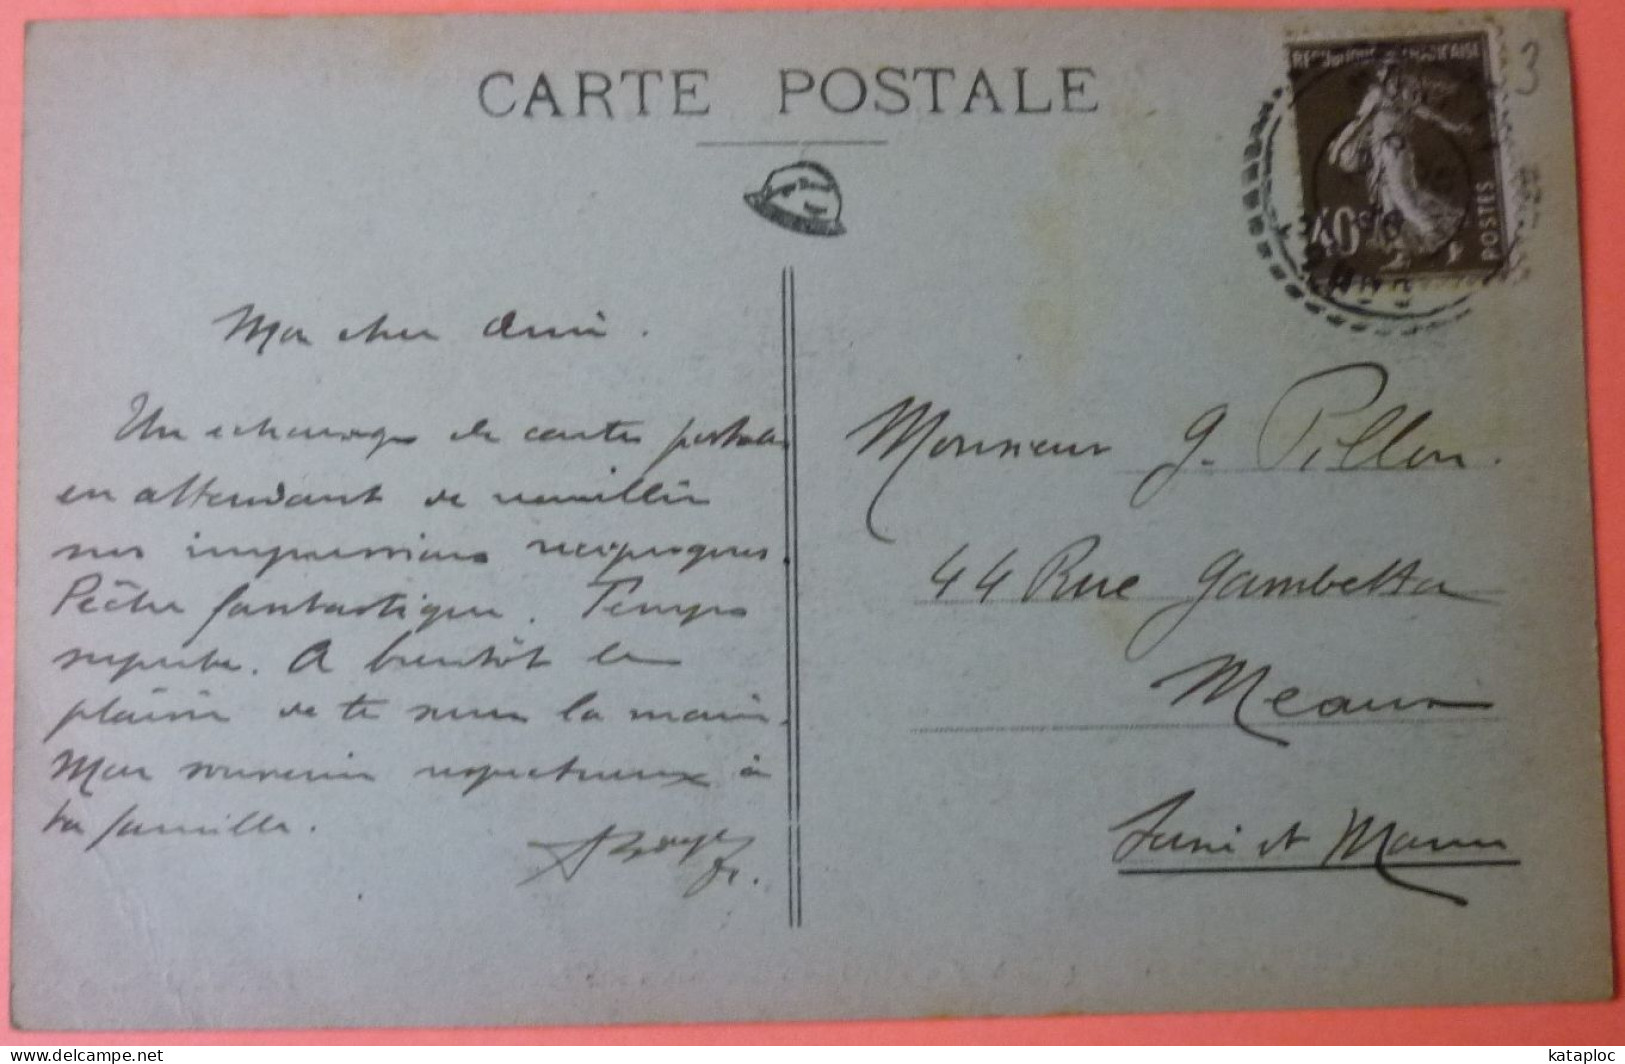 CARTE POSTALE
REPUBLIQUE FRANCAISE
40c
POSTES
3
Mon cher Ami.
Un echange de cartes postales
en attendant de recueillir
nos impressions reciproques.
Pêche fantastique. Temps
superbe. A bientôt le
plaisir de te serrer la main.
Mon souvenir respectueux à
ta famille.
Monsieur G. Pillon.
44 Rue Gambetta
Meaux
Seine et Marne
kataploc